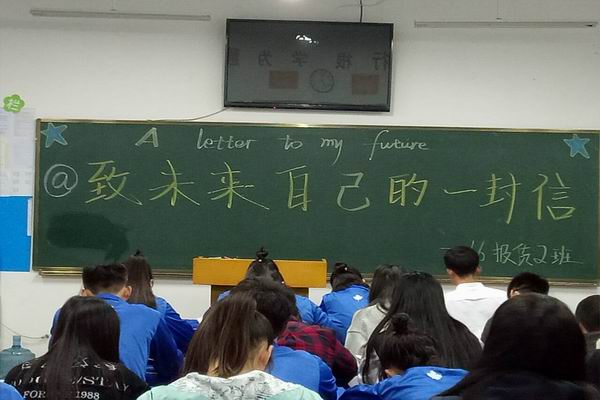 栏
A letter to my future
@致未来自己的一封信
16 2班
STAY
1988